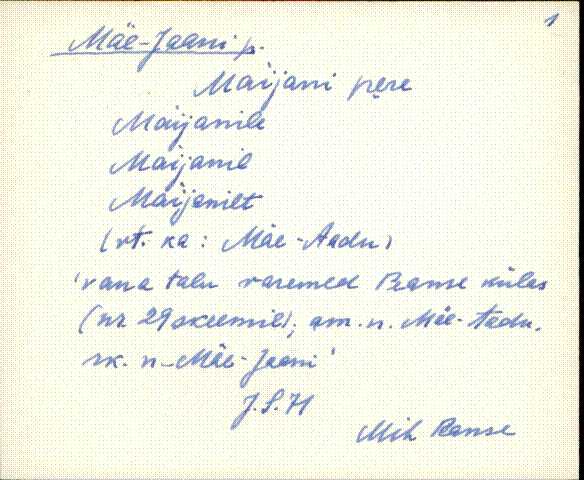 1
Mäe-Jaani p.
Maijani pęre
Maijanile
Maijanil
Maijanilt
(vt. ka: Mäe-Aadu)
'vana talu varemed Panse külas
(nr 29 skeemil); am. n. Mäe-Aadu,
rk. n. Mäe-Jaani'
J.S. 71
Mih Panse